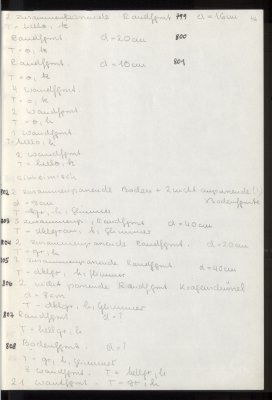 2 zusammenpassende Randfgmt. 799 d = 16cm
T = hello, k
Randfgmt. d = 20cm 800
T = o, k
Randfgmt. d = 18cm 801
T = o, k
4 Wandfgmt
T = o; k
2 Wandfgmt
T = o, k
1 Wandfgmt
T = hello, k
2 Wandfgmt
T = hello, k
einheimisch
802 2 zusammenpassende Boden + 2 nicht anpassende (!)
d = 8cm Bodenfgmte
T = gr, k, Glimmer
803 2 zusammenp. Randfgmt d = 40cm
T = dklgrau, k, Glimmer
804 2 zusammenpassende Randfgmt. d = 20cm
T = gr, k
805 3 zusammenpassende Randfgmt. d = 40cm
T = dklgr, k, Glimmer
806 2 nicht passende Randfgmt
d = 8cm
T = dklgr, k, Glimmer
807 Randfgmt d = ?
T = hellgr, k
808 Bodenfgmt. d = ?
T = gr, k, Glimmer
3 Wandfgmt. T = hellgr, k
21 Wandfgmt. T = gr, k